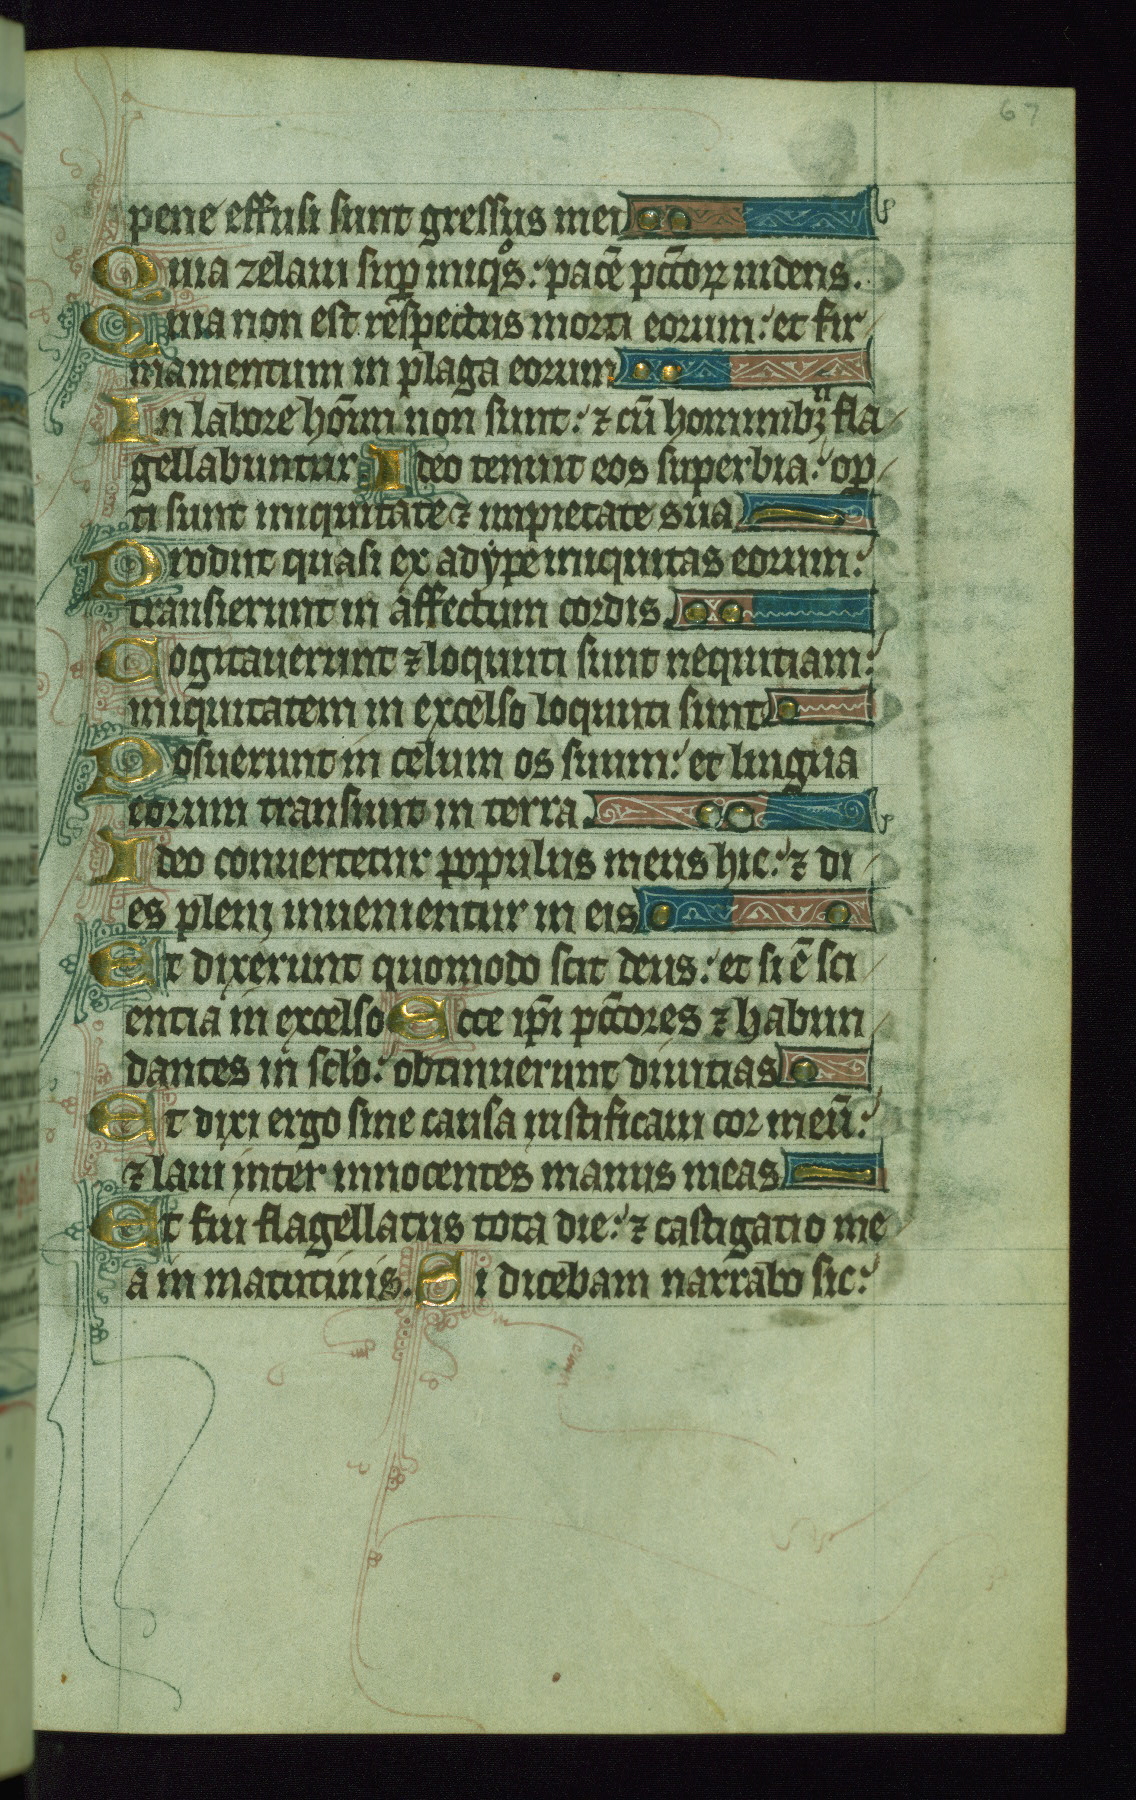 67
pene effusi sunt gressus mei
Quia zelaui sup iniqͦs: pacē pctōꝝ uidens.
Quia non est respectus morti eorum: et fir
mamentum in plaga eorum
In labore hōm non sunt: ⁊ cū hominibꝫ fla
gellabuntur Ideo tenuit eos superbia: op̄
ti sunt iniquitate ⁊ impietate sua
Prodiit quasi ex adype iniquitas eorum:
transierunt in affectum cordis
Cogitauerunt ⁊ loquuti sunt nequitiam:
iniquitatem in excelso loquuti sunt
Posuerunt in celum os suum: et lingua
eorum transiuit in terra.
Ideo conuertetur populus meus hic: ⁊ di
es pleni inuenientur in eis
Et dixerunt quomodo scit deus: et si ē sci
entia in excelso Ecce ip̄i pctōres ⁊ habun
dantes in sclo: obtinuerunt diuitias
Et dixi ergo sine causa iustificaui cor meū:
⁊ laui inter innocentes manus meas
Et fui flagellatus tota die: ⁊ castigatio me
a in matutinis. Si dicebam narrabo sic: